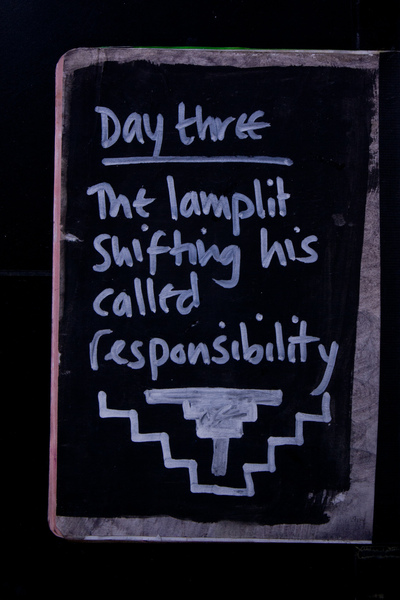 Day three
The lamplit
shifting his
called
responsibility